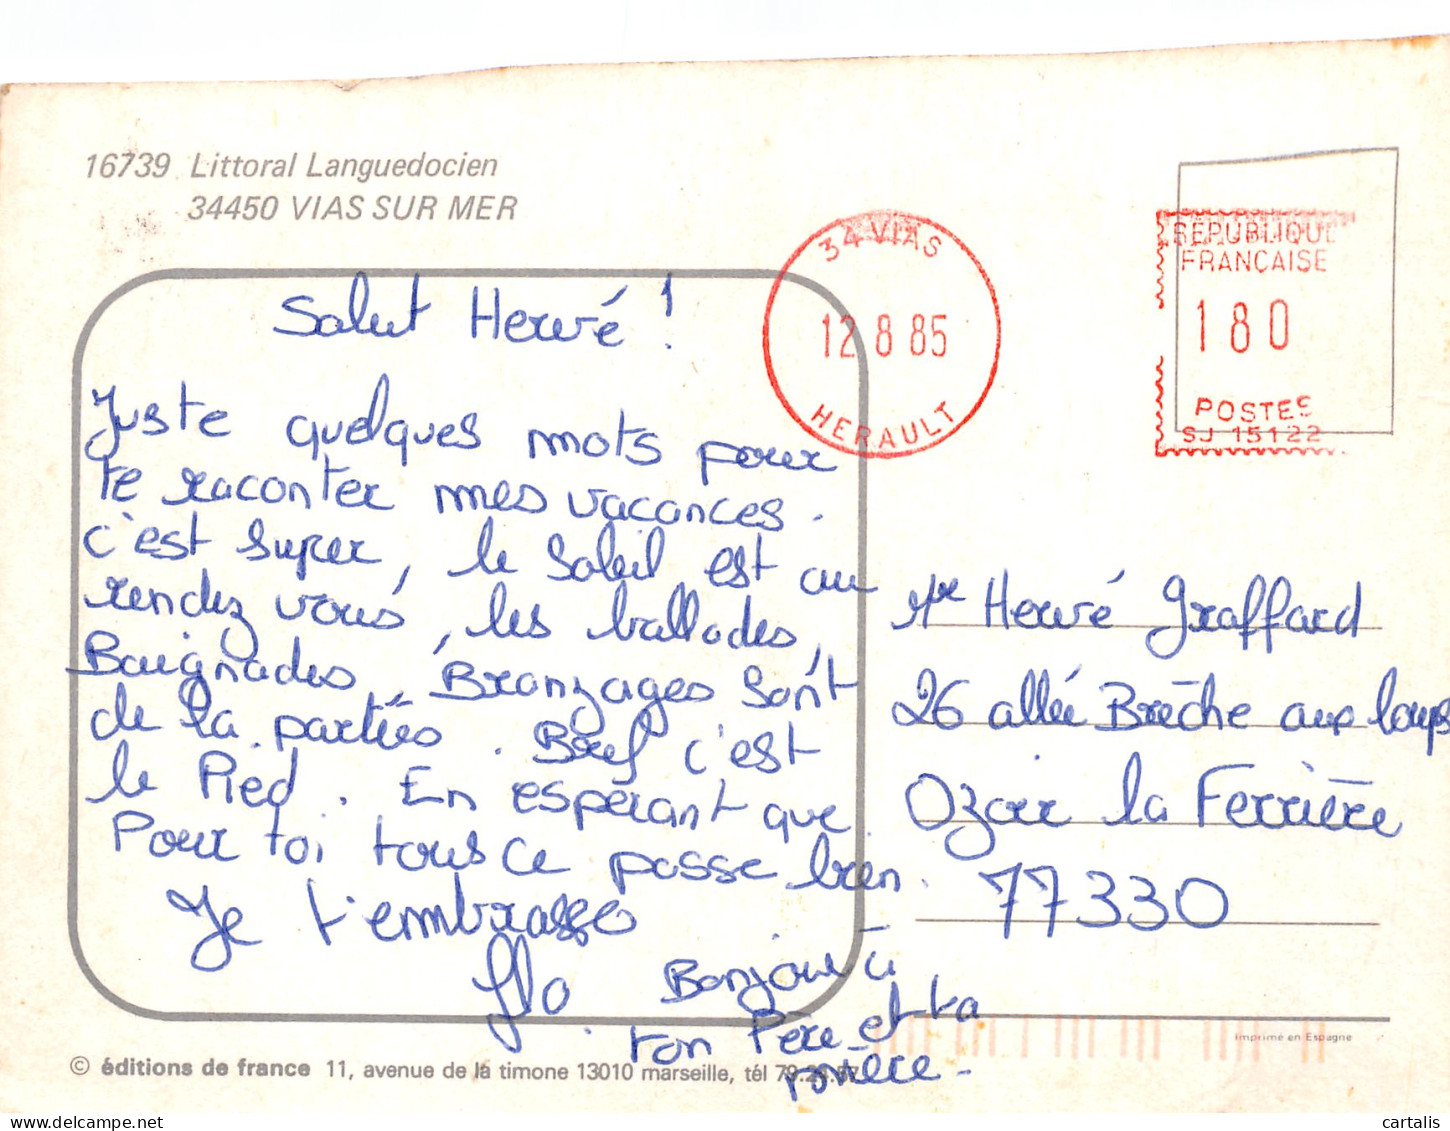 16739 Littoral Languedocien
34450 VIAS SUR MER
34 VIAS
12 8 85
HERAULT
REPUBLIQUE
FRANCAISE
180
POSTES
SJ 15122
Salut Hervé !
Juste quelques mots pour
te raconter mes vacances.
c'est super, le soleil est au
rendez vous, les ballades,
Baignades, Bronzages sont
de la parties. Bref c'est
le Pied. En espérant que
Pour toi tous ce passe bien.
Je t'embrasse
Flo
Bonjour à
ton Père et ta
mère.
Mr Hervé Graffard
26 allée Brèche aux loups
Ozoir la Ferrière
77330
Imprimé en Espagne
© éditions de france 11, avenue de la timone 13010 marseille, tél
cartalis.com